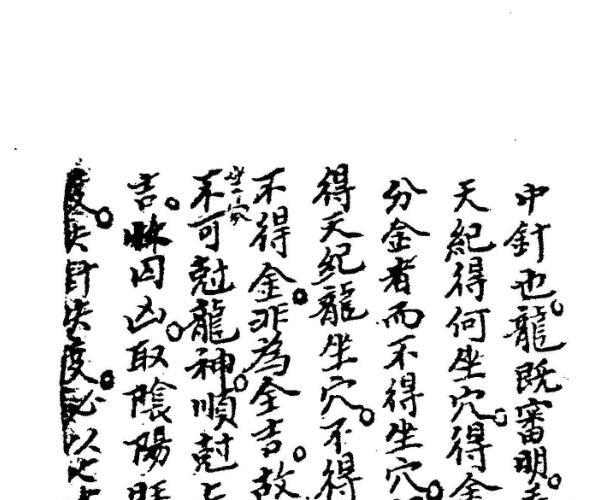 中針也。龍既審明
天紀得何坐穴。得金
分金者而不得坐穴。
得天紀龍坐穴。不得
不得金。非為全吉。故
坐家
未可尅龍神。順尅
吉。休囚凶。取陰陽旺
度。失針失度。必以七